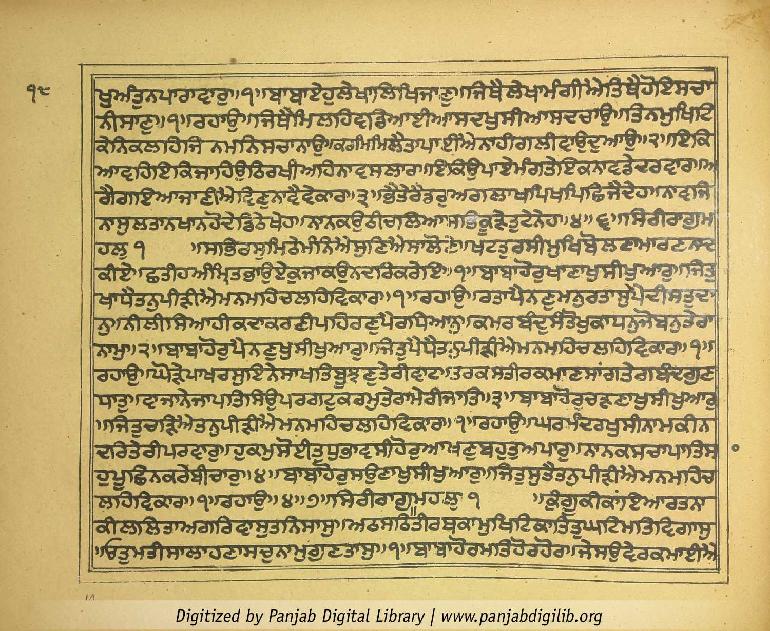 ੧੮
ਖੁਅੰਤੁਨਪਾਰਾਵਾਰੁ॥੧॥ਬਾਬਾਏਹੁਲੇਖਾਲਿਖਿਜਾਣੁ॥ਜਿਥੈਲੇਖਾਮੰਗੀਐਤਿਥੈਹੋਇਸਚਾ
ਨੀਸਾਣੁ॥੧॥ਰਹਾਉ॥ਜਿਥੈਮਿਲਹਿਵਡਿਆਈਆਸਦਖੁਸੀਆਸਦਚਾਉ॥ਤਿਨਮੁਖਿਟਿ
ਕੇਨਿਕਲਹਿਜਿ ਨਮਨਿਸਚਾਨਾਉ॥ਕਰਮਿਮਿਲੈਤਾਪਾਈਐਨਾਹੀਗਲੀਵਾਉਦੁਆਉ॥੨॥ਇਕਿ
ਆਵਹਿਇਕਿਜਾਹਿਉਠਿਰਖੀਅਹਿਨਾਵਸਲਾਰ॥ਇਕਿਉਪਾਏਮੰਗਤੇਇਕਨਾਵਡੇਦਰਵਾਰ॥ਅ
ਗੈਗਇਆਜਾਣੀਐਵਿਣੁਨਾਵੈਵੇਕਾਰ॥੩॥ਭੈਤੇਰੈਡਰੁਅਗਲਾਖਪਿਖਪਿਛਿਜੈਦੇਹ॥ਨਾਵਜਿ
ਨਾਸੁਲਤਾਨਖਾਨਹੋਦੇਡਿਠੇਖੇਹ॥ਨਾਨਕਉਠੀਚਲਿਆਸਭਿਕੂੜੇਤੁਟੇਨੇਹ॥੪॥੬॥ਸਿਰੀਰਾਗੁਮ
ਹਲੁ ੧ ॥ਸਭਿਰਸਮਿਠੇਮੰਨਿਐਸੁਣਿਐਸਾਲੋਣੇ॥ਖਟਤੁਰਸੀਮੁਖਿਬੋਲਣਾਮਾਰਣਨਾਦ
ਕੀਏ॥ਛਤੀਹਅੰਮ੍ਰਿਤਭਾਉਏਕੁਜਾਕਉਨਦਰਿਕਰੇਇ॥੧॥ਬਾਬਾਹੋਰੁਖਾਣਾਖੁਸੀਖੁਆਰੁ॥ਜਿਤੁ
ਖਾਧੈਤਨੁਪੀੜੀਐਮਨਮਹਿਚਲਹਿਵਿਕਾਰ॥੧॥ਰਹਾਉ॥ਰਤਾਪੈਨਣੁਮਨੁਰਤਾਸੁਪੇਦੀਸਤੁਦਾ
ਨੁ॥ਨੀਲੀਸਿਆਹੀਕਦਾਕਰਣੀਪਹਿਰਣੁਪੈਰਧਿਆਨੁ॥ਕਮਰਬੰਦੁਸੰਤੋਖੁਕਾਧਨੁਜੋਬਨੁਤੇਰਾ
ਨਾਮੁ॥੨॥ਬਾਬਾਹੋਰੁਪੈਨਣੁਖੁਸੀਖੁਆਰੁ॥ਜਿਤੁਪੈਧੈਤਨੁਪੀੜੀਐਮਨਮਹਿਚਲਹਿਵਿਕਾਰ॥੧॥
ਰਹਾਉ॥ਘੋੜੇਪਾਖਰਸੁਇਨੇਸਾਖਤਿਬੂਝਣੁਤੇਰੀਵਾਟ॥ਤਰਕਸਤੀਰਕਮਾਣਸਾਂਗਤੇਗਬੰਦਗੁਣ
ਧਾਤੁ॥ਵਾਜਾਨੇਜਾਪਤਿਸਿਉਪਰਗਟੁਕਰਮੁਤੇਰਾਮੇਰੀਜਾਤਿ॥੩॥ਬਾਬਾਹੋਰੁਚੜਣਾਖੁਸੀਖੁਆਰੁ
॥ਜਿਤੁਚੜਿਐਤਨੁਪੀੜੀਐਮਨਮਹਿਚਲਹਿਵਿਕਾਰ॥੧॥ਰਹਾਉ॥ਘਰਮੰਦਰਖੁਸੀਨਾਮਕੀਨ
ਦਰਿਤੇਰੀਪਰਵਾਰੁ॥ਹੁਕਮੁਸੋਈਤੁਧੁਭਾਵਸੀਹੋਰੁਆਖਣੁਬਹੁਤੁਅਪਾਰੁ॥ਨਾਨਕਸਚਾਪਾਤਿਸ
ਹੁਪੂਛਿਨਕਰੇਬੀਚਾਰੁ॥੪॥ਬਾਬਾਹੋਰੁਸਉਣਾਖੁਸੀਖੁਆਰੁ॥ਜਿਤੁਸੁਤੈਤਨੁਪੀੜੀਐਮਨਮਹਿਚ
ਲਹਿਵਿਕਾਰ॥੧॥ਰਹਾਉ॥੪॥੭॥ਸਿਰੀਰਾਗੁਮਹਲੁ ੧ ॥ਕੁੰਗੂਕੀਕਾਂਇਆਰਤਨਾ
ਕੀਲਲਿਤਾਅਗਰਿਵਾਸੁਤਨਿਸਾਸੁ॥ਅਠਸਠਿਤੀਰਥਕਾਮੁਖਿਟਿਕਾਤਿਤੁਘਟਿਮਤਿਵਿਗਾਸੁ
॥ਓਤੁਮਤੀਸਾਲਾਹਣਾਸਚੁਨਾਮੁਗੁਣਤਾਸੁ॥੧॥ਬਾਬਾਹੋਰਮਤਿਹੋਰਹੋਰ॥ਜੇਸਉਵੇਰਕਮਾਈਐ
Digitized by Panjab Digital Library | www.panjabdigilib.org